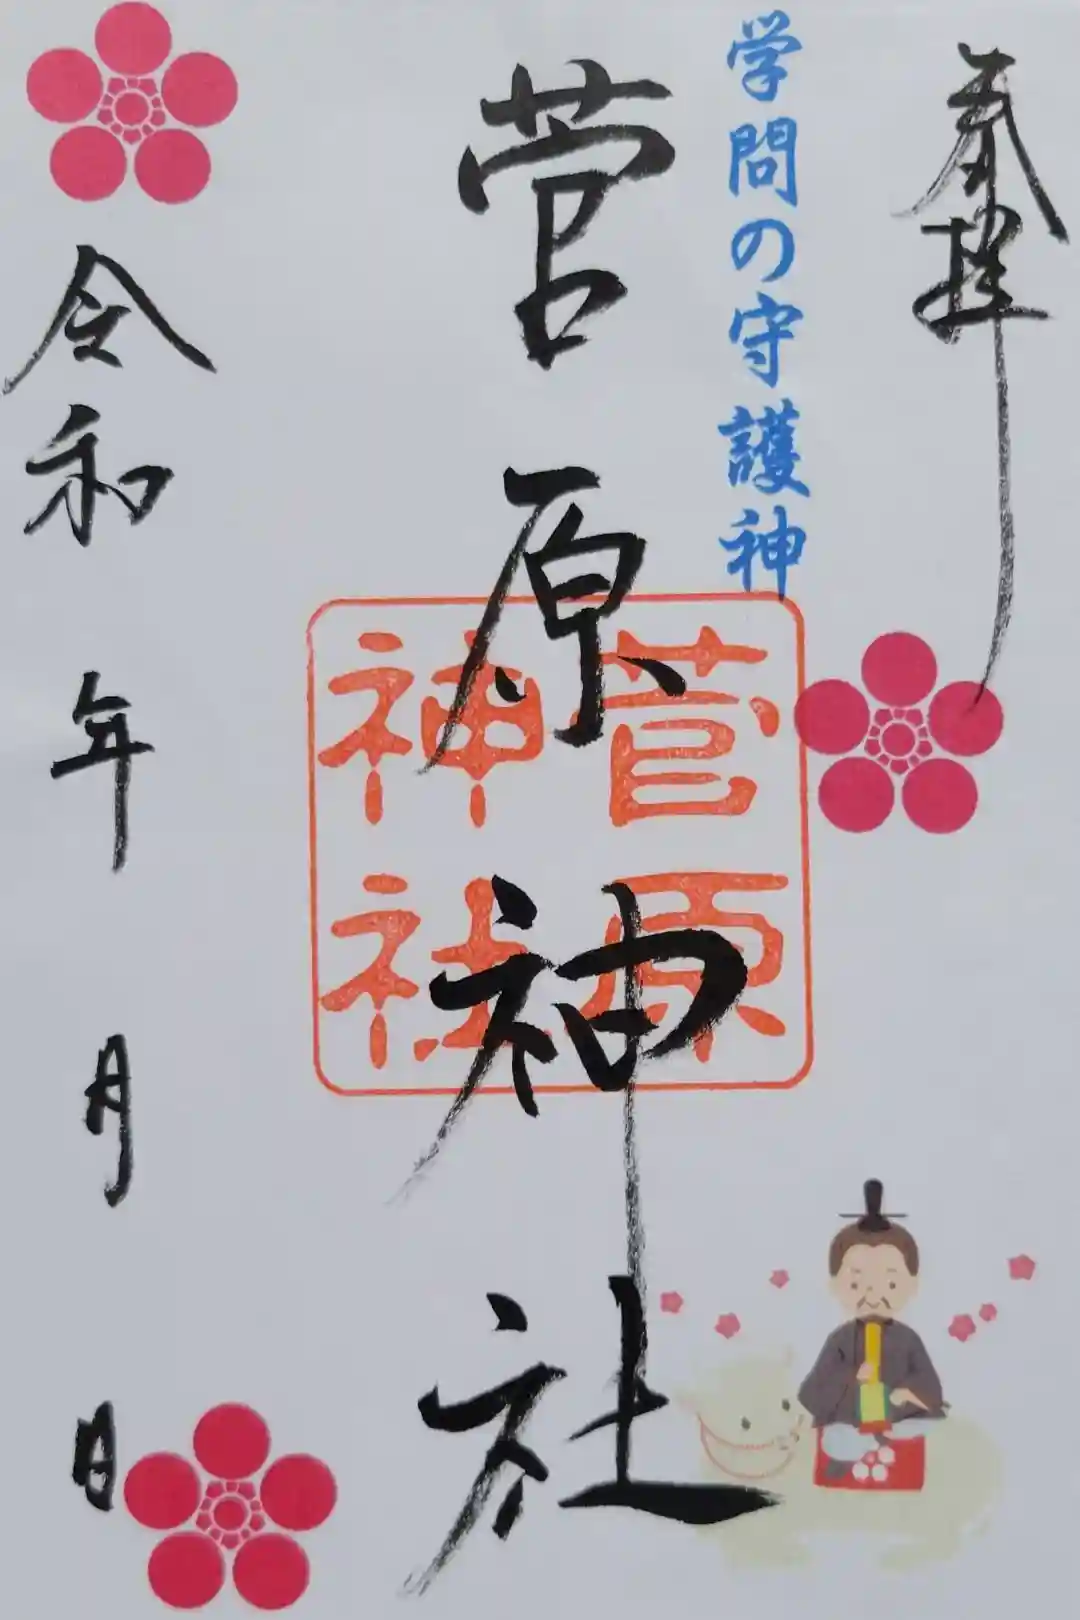 奉拝
学問の守護神
菅原神社
菅原
神社
令和 年 月 日